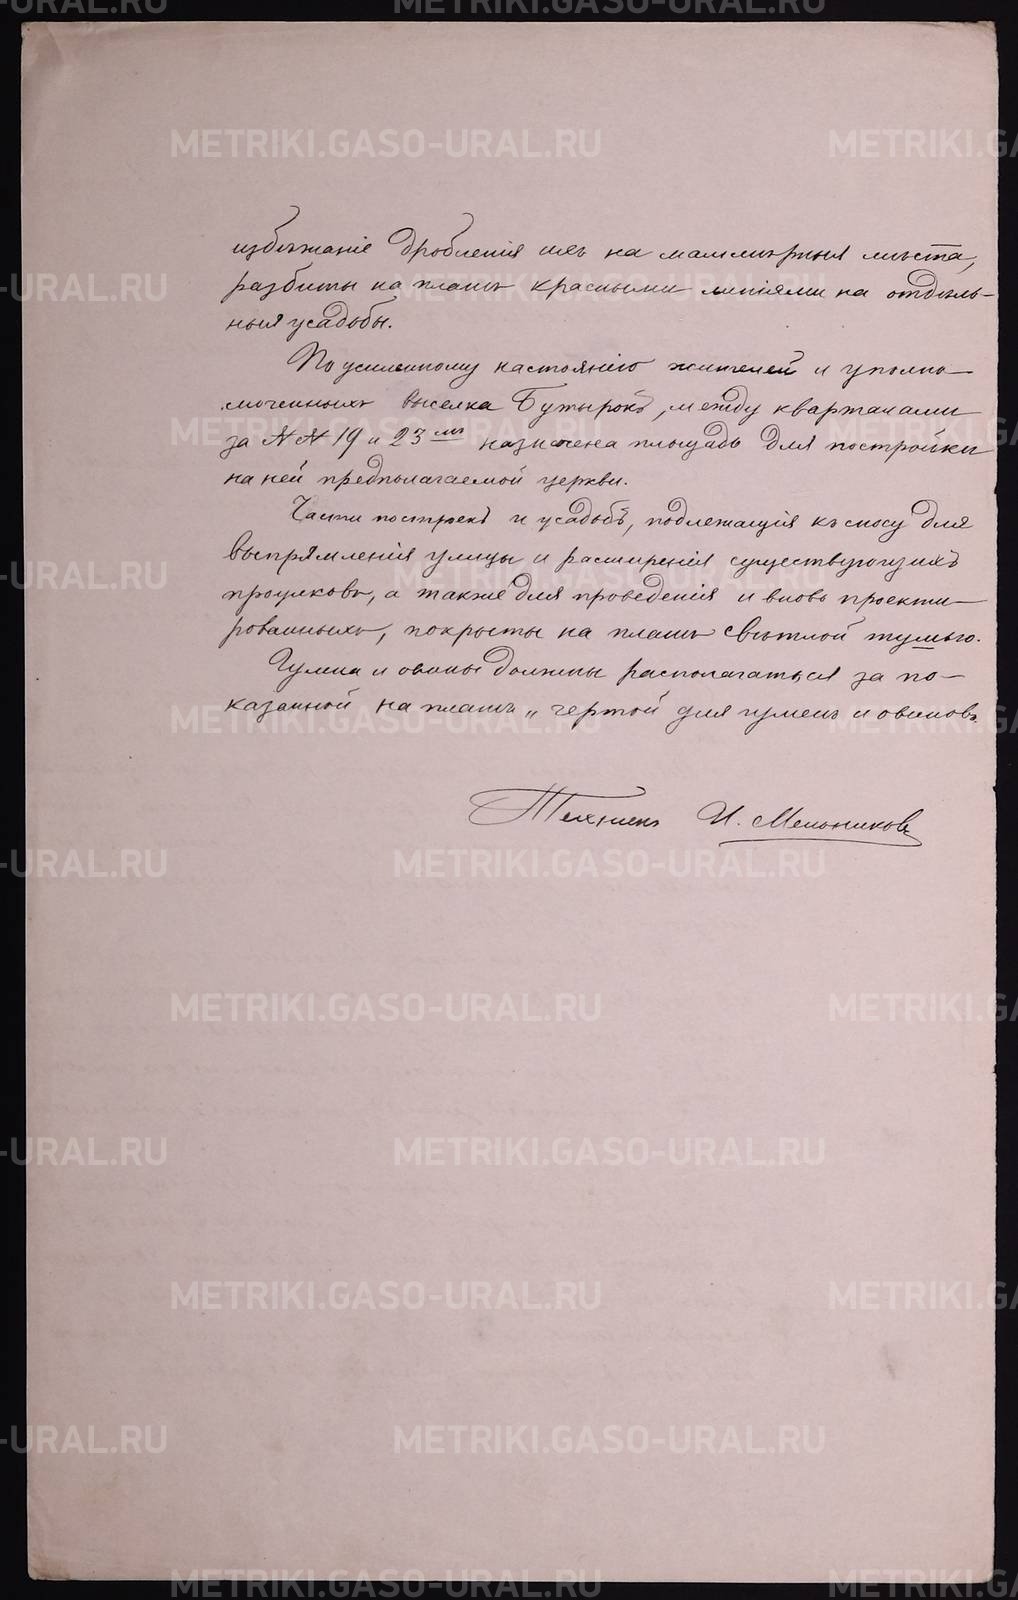 избѣжаніе дробленія ихъ на маломѣрныя мѣста,
разбиты на планѣ красными линіями на отдѣль-
ныя усадьбы.
По усиленному настоянію жителей и уполно-
моченныхъ выселка Бутырокъ, между кварталами
за №№ 19 и 23мъ назначена площадь для постройки
на ней предполагаемой церкви.
Части построекъ и усадьбъ, подлежащія къ сносу для
выпрямленія улицы и расширенія существующихъ
проулковъ, а также для проведенія и вновь проекти-
рованныхъ, покрыты на планѣ свѣтлой тушью.
Гумна и овины должны располагаться за по-
казанной на планѣ „чертой для гуменъ и овиновъ.
Техникъ И. Мельниковъ
METRIKI.GASO-URAL.RU